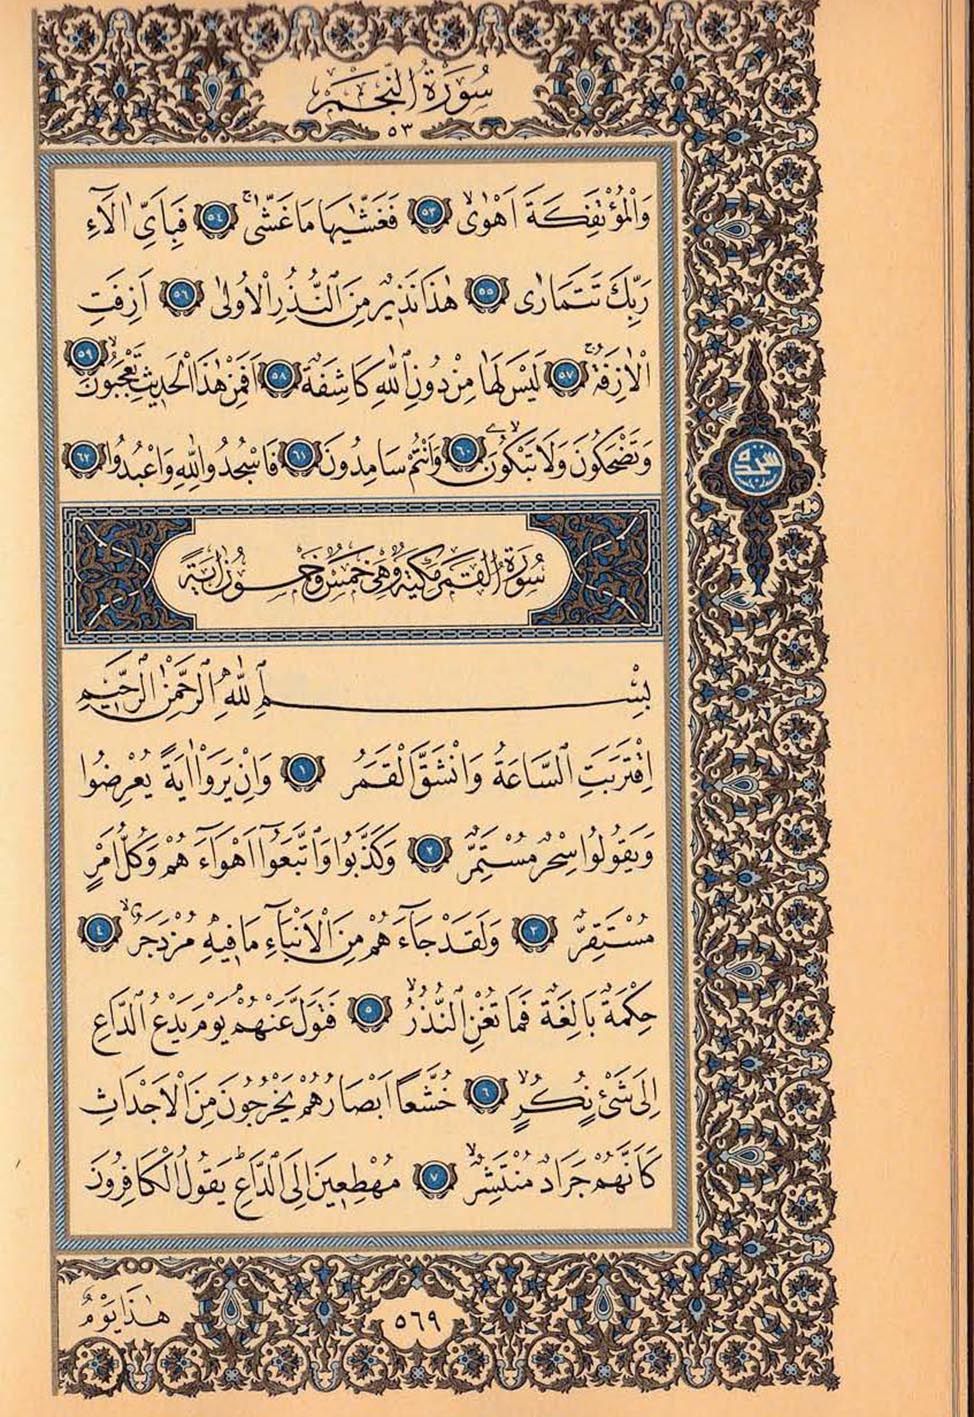 سُورَةُ النَّجْمِ
٥٣
وَالْمُؤْتَفِكَةَ اَهْوٰىۙ ٥٣ فَغَشّٰيهَا مَا غَشّٰىۚ ٥٤ فَبِاَيِّ اٰلَٓاءِ
رَبِّكَ تَتَمَارٰى ٥٥ هٰذَا نَذ۪يرٌ مِنَ النُّذُرِ الْاُو۫لٰى ٥٦ اَزِفَتِ
الْاٰزِفَةُۚ ٥٧ لَيْسَ لَهَا مِنْ دُونِ اللّٰهِ كَاشِفَةٌۜ ٥٨ اَفَمِنْ هٰذَا الْحَد۪يثِ تَعْجَبُونَۙ ٥٩
وَتَضْحَكُونَ وَلَا تَبْكُونَۙ ٦٠ وَاَنْتُمْ سَامِدُونَ ٦١ فَاسْجُدُوا لِلّٰهِ وَاعْبُدُوا ٦٢
سجده
سُورَةُ الْقَمَرِ مَكِّيَّةٌ وَهِيَ خَمْسٌ وَخَمْسُونَ اٰيَةً
بِسْمِ اللّٰهِ الرَّحْمٰنِ الرَّح۪يمِ
اِقْتَرَبَتِ السَّاعَةُ وَانْشَقَّ الْقَمَرُ ١ وَاِنْ يَرَوْا اٰيَةً يُعْرِضُوا
وَيَقُولُوا سِحْرٌ مُسْتَمِرٌّ ٢ وَكَذَّبُوا وَاتَّبَعُٓوا اَهْوَٓاءَهُمْ وَكُلُّ اَمْرٍ
مُسْتَقِرٌّ ٣ وَلَقَدْ جَٓاءَهُمْ مِنَ الْاَنْبَٓاءِ مَا ف۪يهِ مُزْدَجَرٌۙ ٤
حِكْمَةٌ بَالِغَةٌ فَمَا تُغْنِ النُّذُرُۙ ٥ فَتَوَلَّ عَنْهُمْۢ يَوْمَ يَدْعُ الدَّاعِ
اِلٰى شَيْءٍ نُكُرٍۙ ٦ خُشَّعاً اَبْصَارُهُمْ يَخْرُجُونَ مِنَ الْاَجْدَاثِ
كَاَنَّهُمْ جَرَادٌ مُنْتَشِرٌۙ ٧ مُهْطِع۪ينَ اِلَى الدَّاعِۜ يَقُولُ الْكَافِرُونَ
هٰذَا يَوْمٌ
٥٦٩